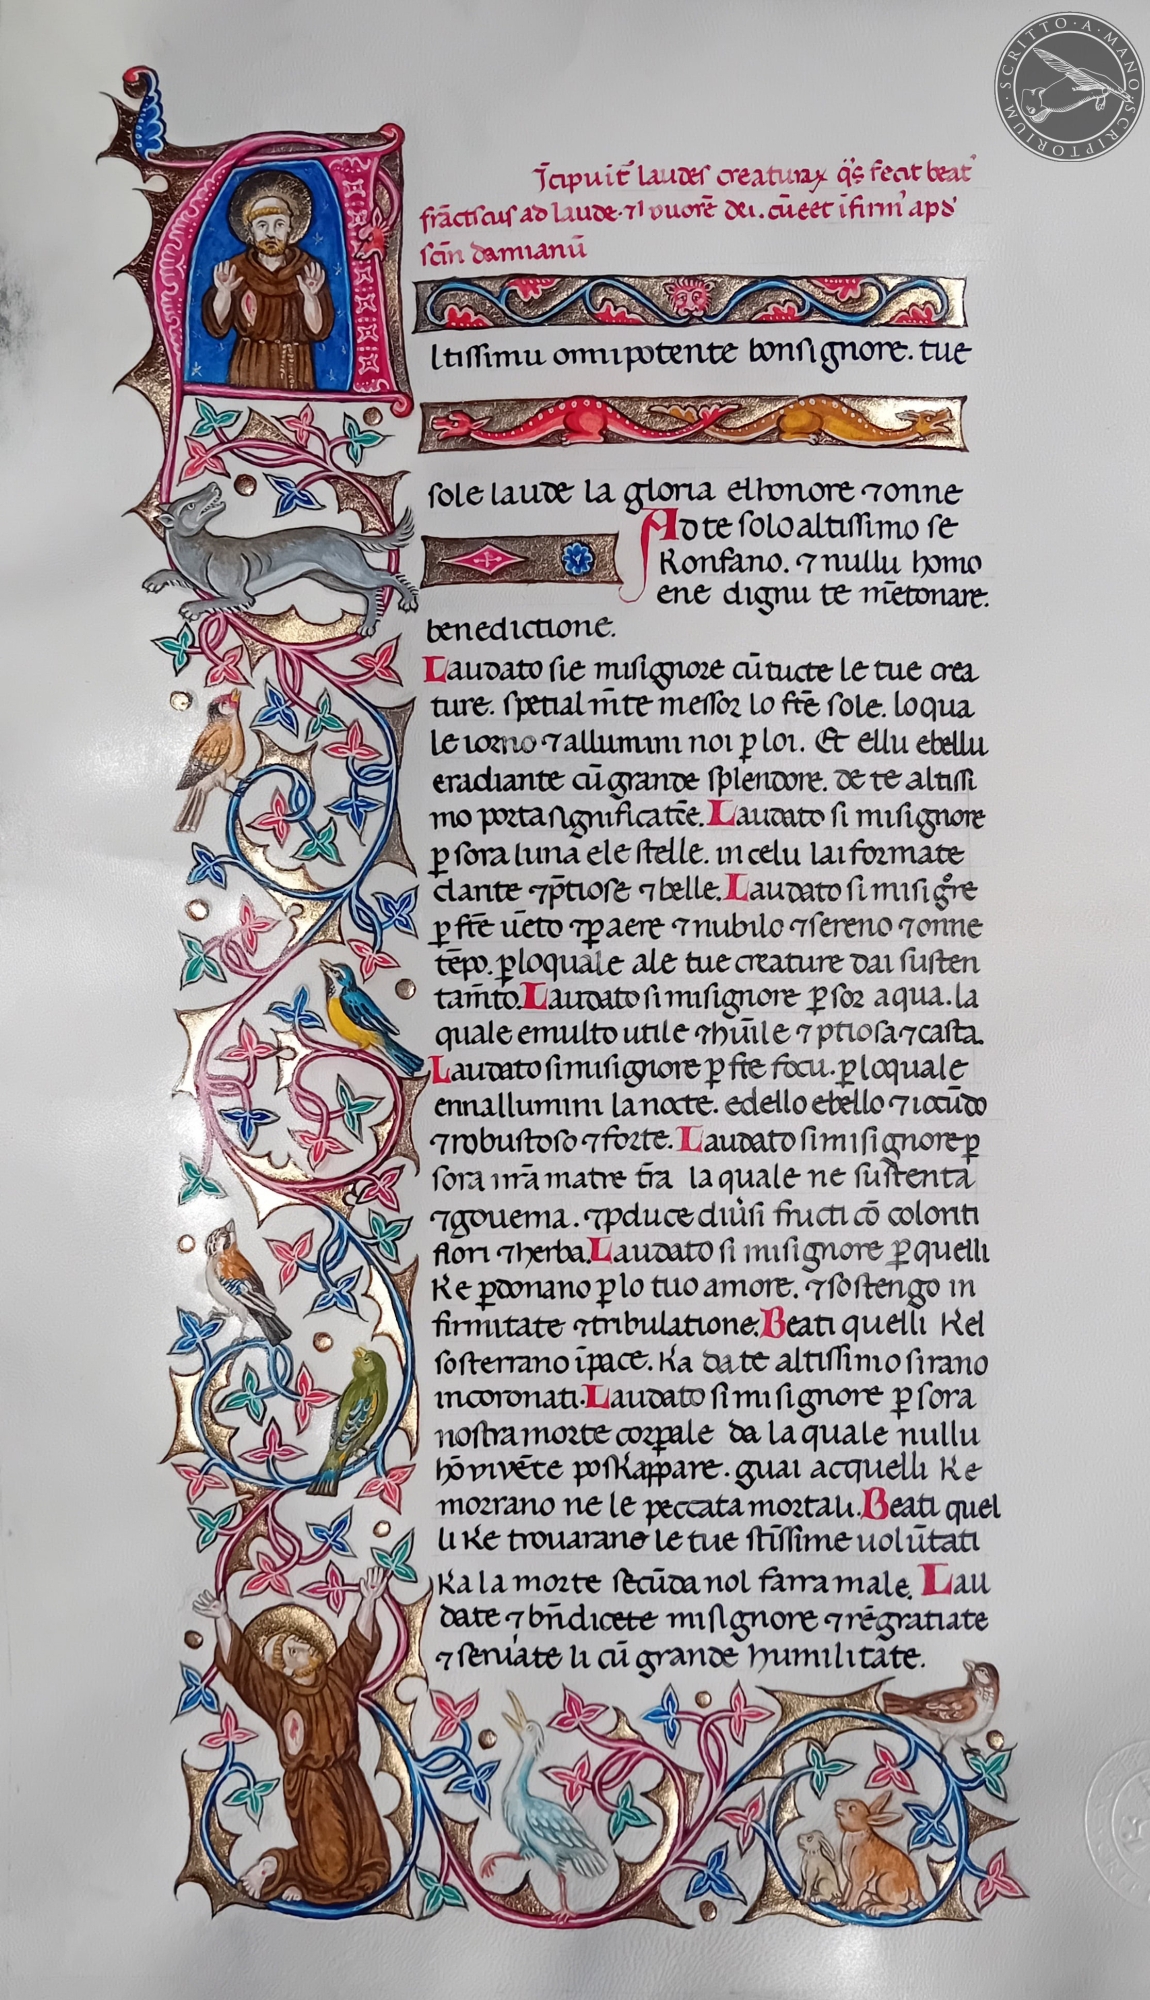 SCRITTO · A · MANO · SCRIPTORIUM ·
J̄cipuīt laudes creaturaꝝ q̄s fecit beat᾿
frāctiscus ad laude ⁊ l vuorē dei. cū eēt īfirm᾿ apd᾿
scīn damianū
Altissimu omnipotente bonsignore. tue
sole laude la gloria elhonore ⁊onne
Ad te solo altissimo se
Konfano. ⁊ nullu homo
ene dignu te m̄etonare.
benedictione.
Laudato sie misignore cū tucte le tue crea
ture. spetialm̄te messor lo frē sole. loqua
le iorno ⁊allumini noi ꝑ loi. Et ellu ebellu
eradiante cū grande splendore. de te altissi
mo porta significatiōe. Laudato si misignore
ꝑ sora luna ele stelle. in celu lai formate
clarite ⁊p̄tiose ⁊belle. Laudato si misigre
ꝑ frē uēto ⁊ꝑ aere ⁊nubilo ⁊sereno ⁊onne
tēpo. ꝑ loquale ale tue creature dai susten
tam̄to. Laudato si misignore ꝑ sor aqua. la
quale emulto utile ⁊hūile ⁊ptiosa ⁊casta.
Laudato simisignore ꝑ fre focu. ꝑ loquale
ennallumini la nocte. edello ebello ⁊iocūdo
⁊robustoso ⁊forte. Laudato si misignore ꝑ
sora nrā matre t̄ra la quale ne sustenta
⁊gouerna. ⁊ꝓduce diu᾿si fructi cō coloriti
flori ⁊herba. Laudato si misignore ꝑ quelli
Ke ꝑdonano ꝑ lo tuo amore. ⁊sostengo in
firmitate ⁊tribulatione. Beati quelli Kel
sosterrano īpace. Ka da te altissimo sirano
incoronati. Laudato si misignore ꝑ sora
nostra morte corꝑale da la quale nullu
hō vivēte poskappare. guai acquelli Ke
morrano ne le peccata mortali. Beati quel
li Ke trouarane le tue stissime uolūtati
Ka la morte secūda nol farra male. Lau
date ⁊ bn̄dicete misignore ⁊rēgratiate
⁊seruiate li cū grande humilitate.